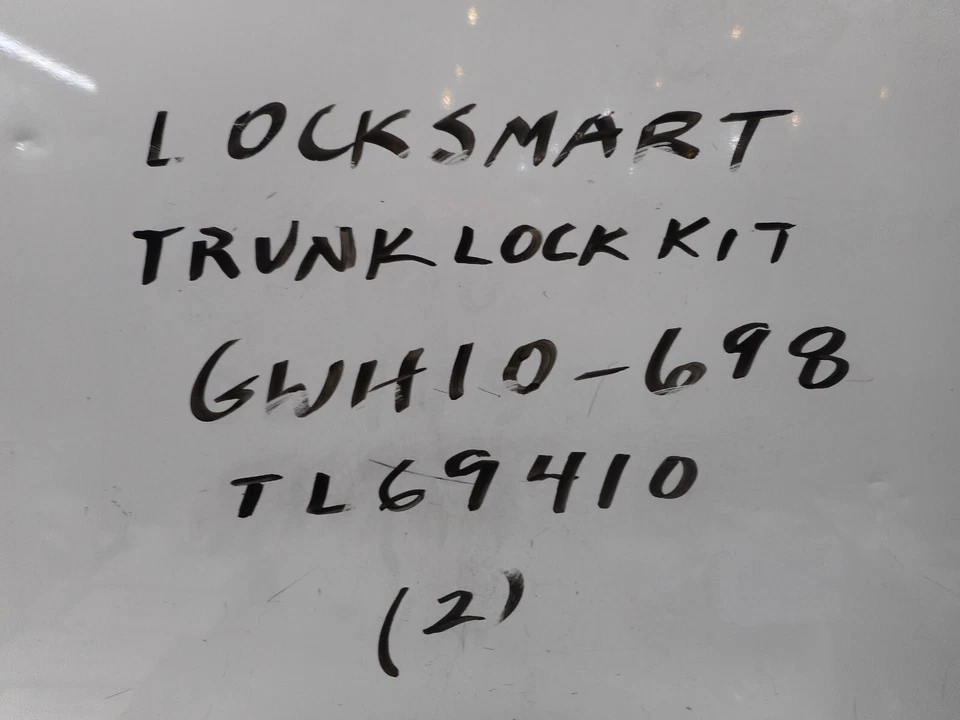 LOCKSMART
TRUNK LOCK KIT
GWH10-698
TL69410
(2)